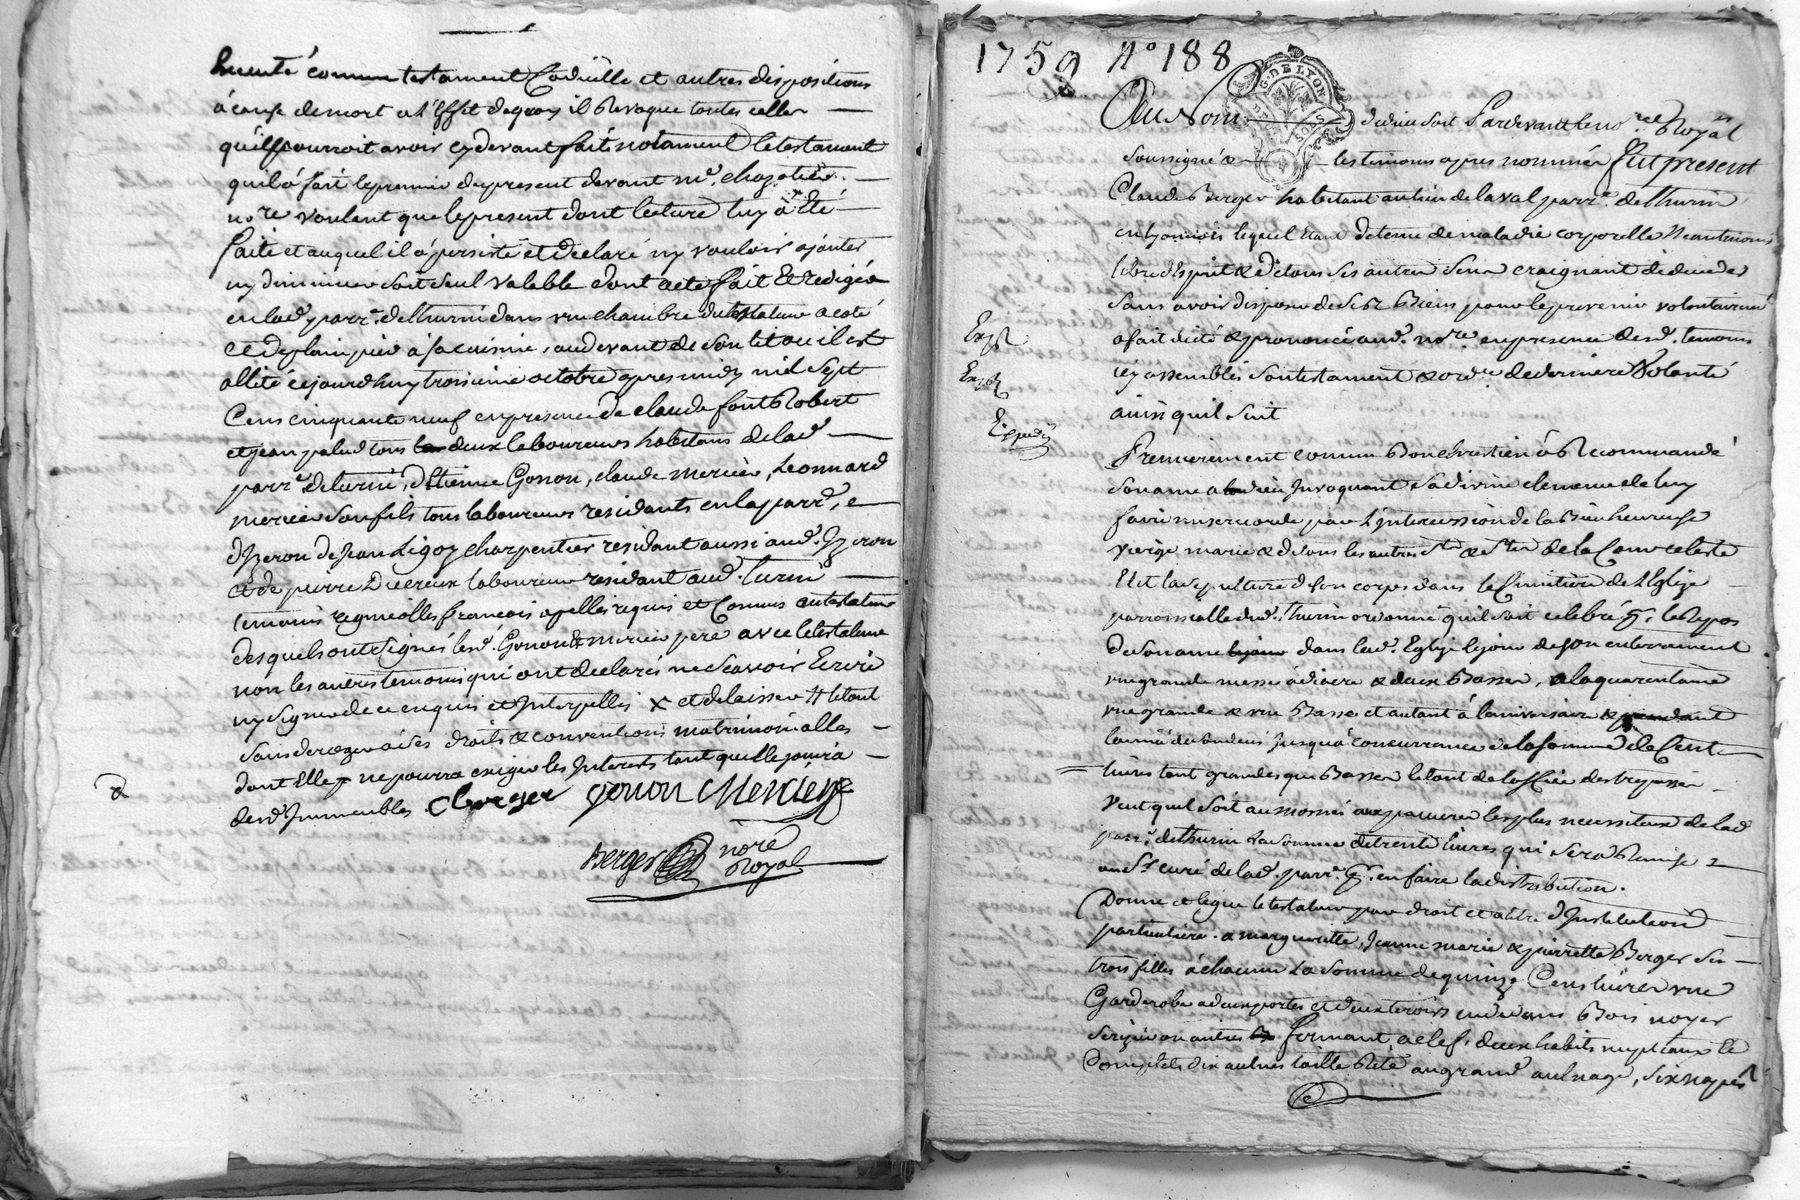 humté comme testament Codicille et autres dispositions
à cause de mort a l'Effet dequoy il Revoque toutes celles
qu'il pourroit avoir cy devant fait notament le testament
quil á fait le premier du present devant me. chazotier
nore voulant que le present dont lecture luy á Eté
faite et auquel il á persisté et declaré ny vouloir ajouter
ny diminuer soit seul valable dont acte fait Et redigé
en lad. parr. de thurin dans une chambre du testateur a coté
et de plain pied á sa cuisine, au devant de son lit ou il est
allité cejourdhuy troisieme octobre apres midy mil sept
Cens cinquante neuf en presence de claude font Robert
et jean palud tous deux laboureurs habitans de lad.
parr. de turin, d'Etienne Gonon, claude mercier, Leonnard
mercier son fils tous laboureurs residants en la parr. e
d'Izeron de Jean Ligoy charpentier residant aussi aud. Izeron
et de pierre Ducreux laboureur residant aud. turin
temoins regnicolles francois apellés requis et Connus au testateur
desquels ont signés lesd. Gonon & mercier pere avec le testateur
non les autres temoins qui ont declarés ne Scavoir Ecrire
ny signer de ce enquis et Interpellés x et delaisser # le tout
sans deroger a ses droits & conventions matrimonialles
dont Elle ne pourra exiger les Interets tant quelle jouira
desd. Immeubles. C berger gonon Mercier
Berger nore
Royal
1759 No 188
G. DE LYON
Au Nom de dieu soit Pardevant le nore Royal
soussigné & les temoins apres nommés fut present
Claude Berger habitant au lieu de laval parr. de thurin
en lyonnois lequel Etant detenu de maladie corporelle Neantmoins
libre d'Esprit & de tous ses autres sens craignant de deceder
sans avoir disposé de ses Biens pour le prevenir volontairemt
a fait dicté & prononcé aud. nore. en presence desd. temoins
icy assemblés son testament & ordce de derniere Volonté
ainsi quil suit
Exp
Exp
Expedié
Premierement comme Bon chretien á Recommandé
son ame a dieu Invoquant sa divine clemence de luy
faire misericorde par L'intercession de la Bienheureuse
vierge marie & de tous les autres sts & stes de la Cour celeste
Elit la sepulture de son corps dans le Cimitiere de L'Eglise
parroissialle dud. thurin ordonne quil soit celebré pr. le Repos
de son ame dans lad. Eglise le jour de son enterrement
une grande messe á diacre & deux Basses, a la quarantaine
une grande & une Basse et autant á l'aniversaire & pendant
lannée du bout Jusqu'á concurrance de la somme de Cent
livres tant grandes que Basses le tout de loffice des trepassés
Veut quil soit aumosnés aux pauvres les plus necessiteux de lad
parr. de thurin la somme de trente livres qui sera Remise
au sr. curé de lad. parr. pr. en faire la distribution.
Donne et legue le testateur par droit et titre d'Institution
particuliere a marguerite, Jeanne marie & pierrette Berger ses
trois filles á chacune La somme de quinze Cens livres une
Garderobe a deux portes et deux tiroirs au dedans Bois noyer
serizier ou autres fermant a clef, deux habits nuptiaux le
Complet, dix aulnes toille Reté au grand aulnage, six nappes